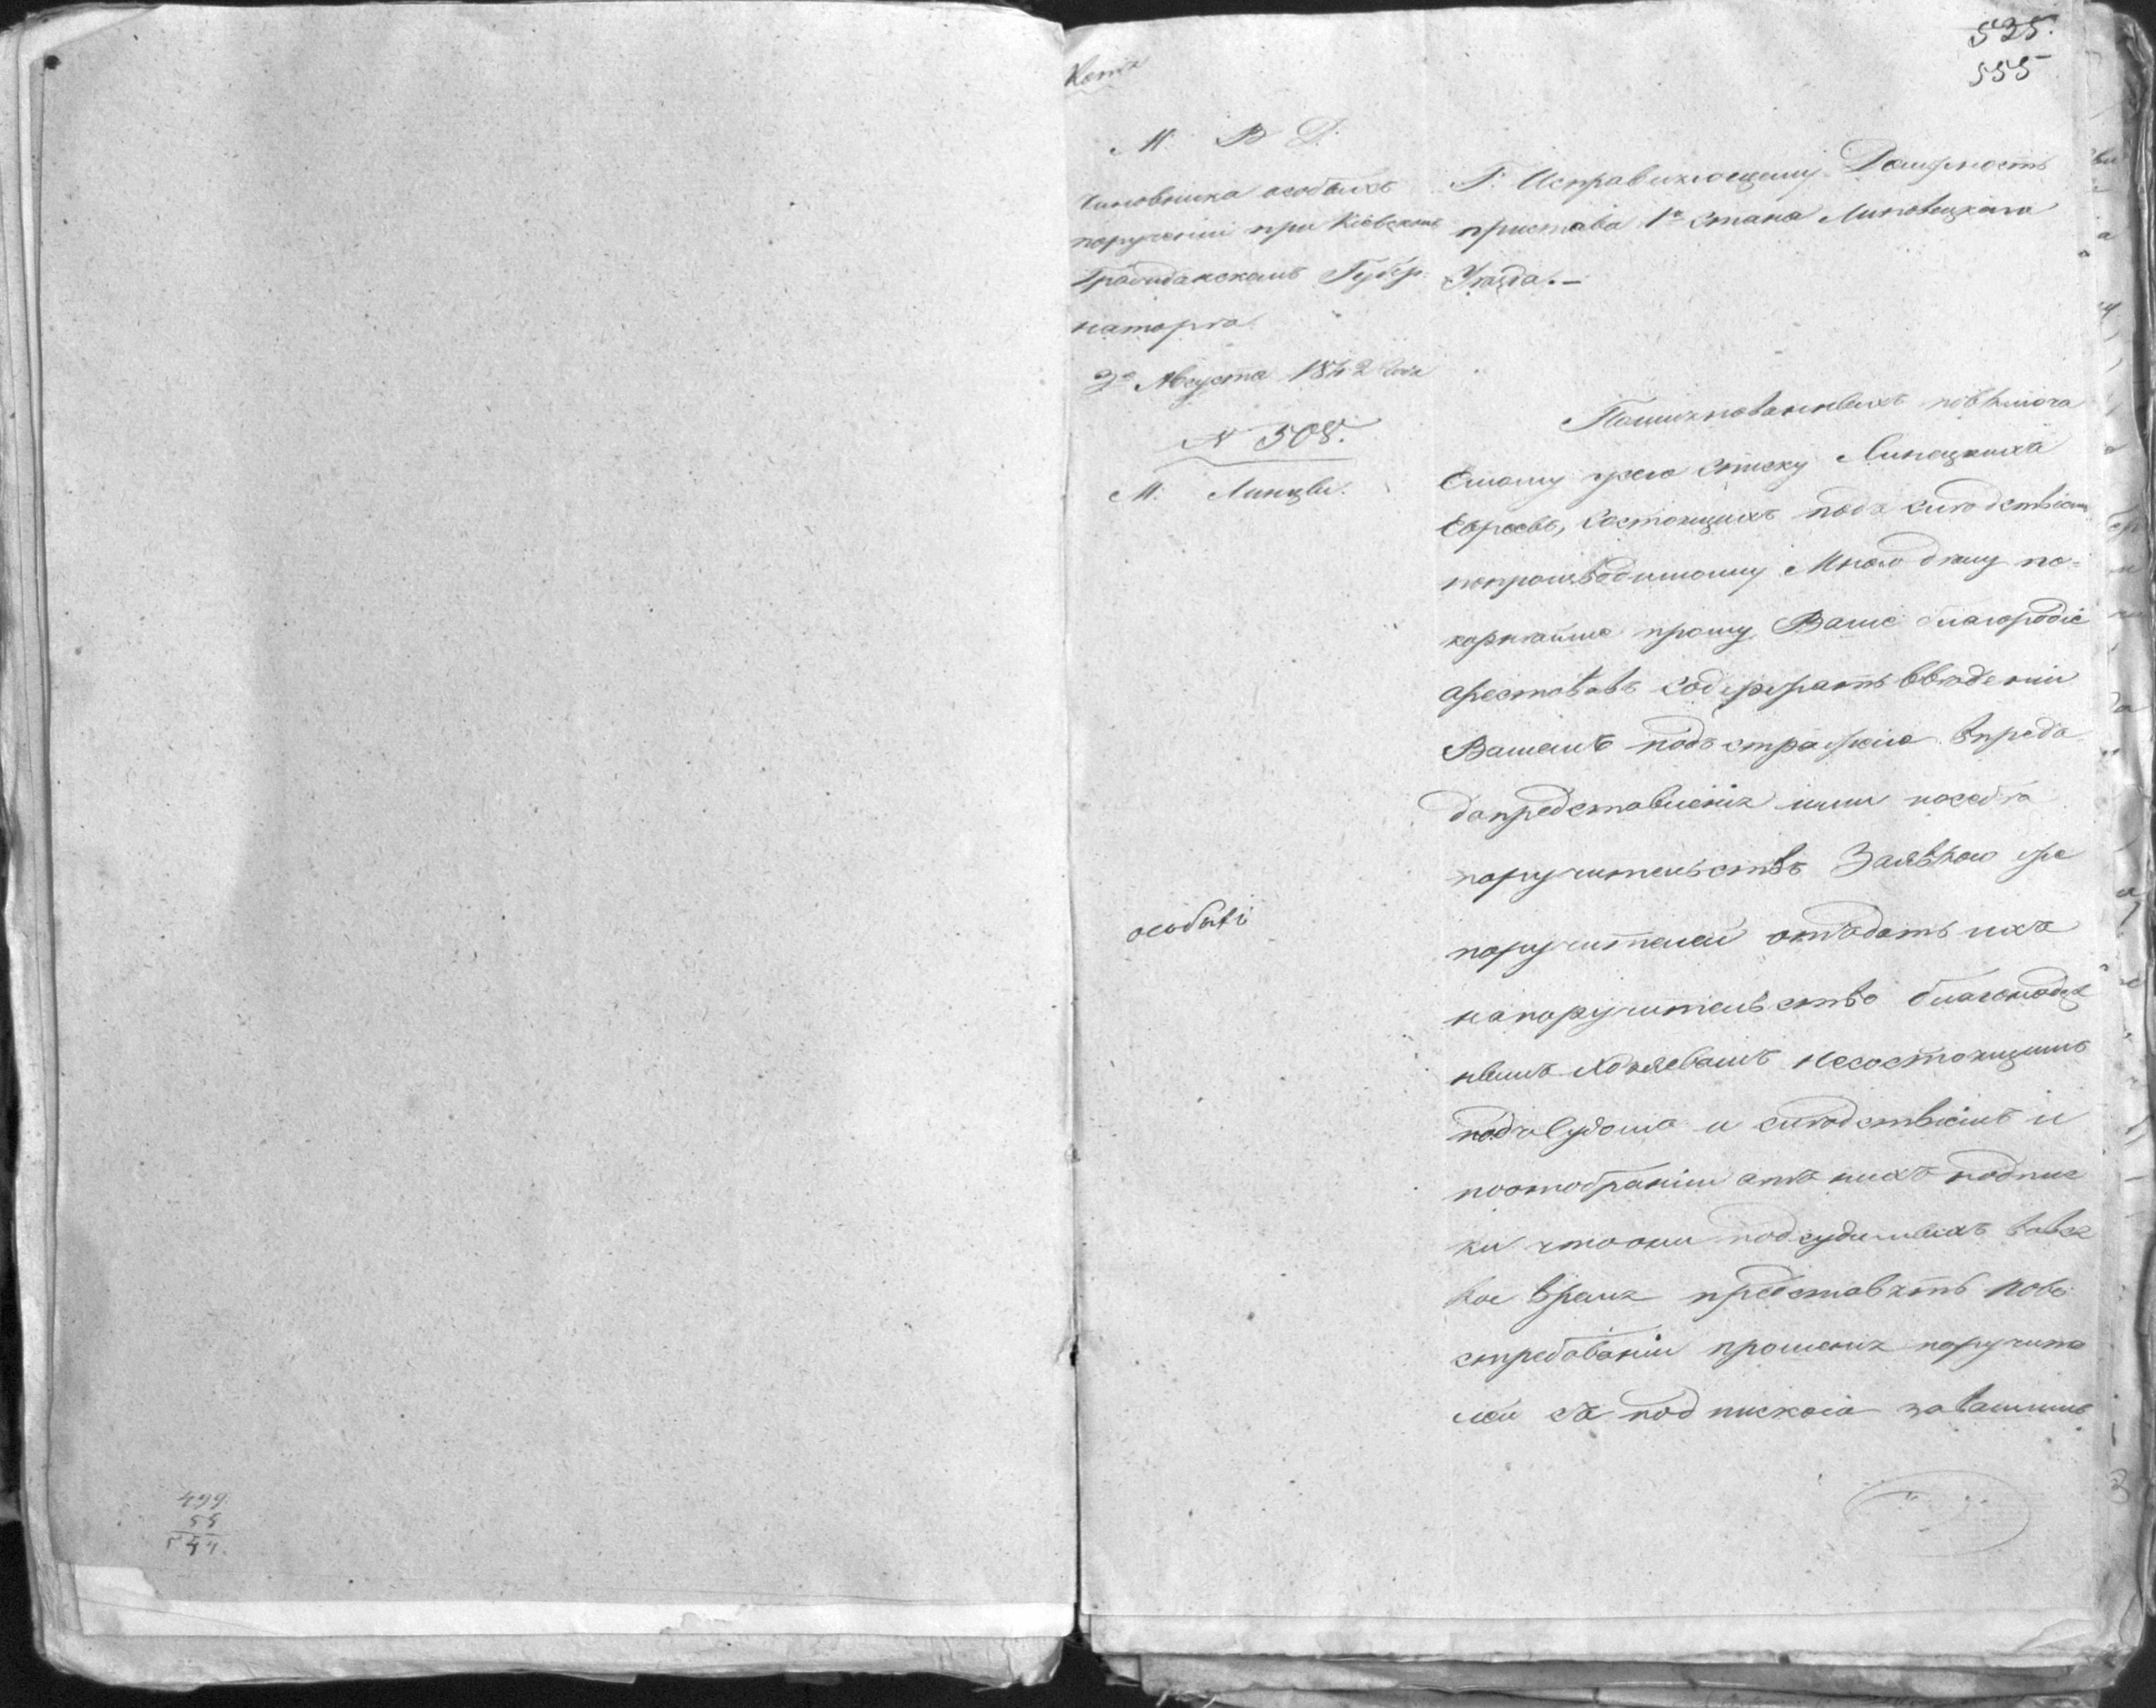 525.
555
Копія
М. В. Д.
Чиновника особыхъ
порученій при Кіевскомъ
Гражданскомъ Губер-
наторѣ
3го Августа 1842 года
№ 508.
М. Линцы.
особыхъ
Г. Исправляющему Должность
пристава 1го стана Липовецкаго
Уѣзда.—
Поименованныхъ въ прилага
емому у сего списку Линецкихъ
Евреевъ, состоящихъ подъ слѣдствіемъ
попроизводимому Мною дѣлу по=
корнѣйше прошу Ваше благородіе
арестовавъ содержать ввѣденіи
Вашемъ подъ стражею впредь
допредставленія ими посебѣ
поручительствъ
поручителей отдать ихъ
напоручительство благонадеж
нымъ хозяевамъ несостоящимъ
подъ Судомъ и слѣдствіемъ и
поотобраніи отъ нихъ подпис
ки чтоони подсудимыхъ вовся
кое время представятъ повос
стребованіи прошенія поручите
лей съ подпискою завашимъ
499
55
544